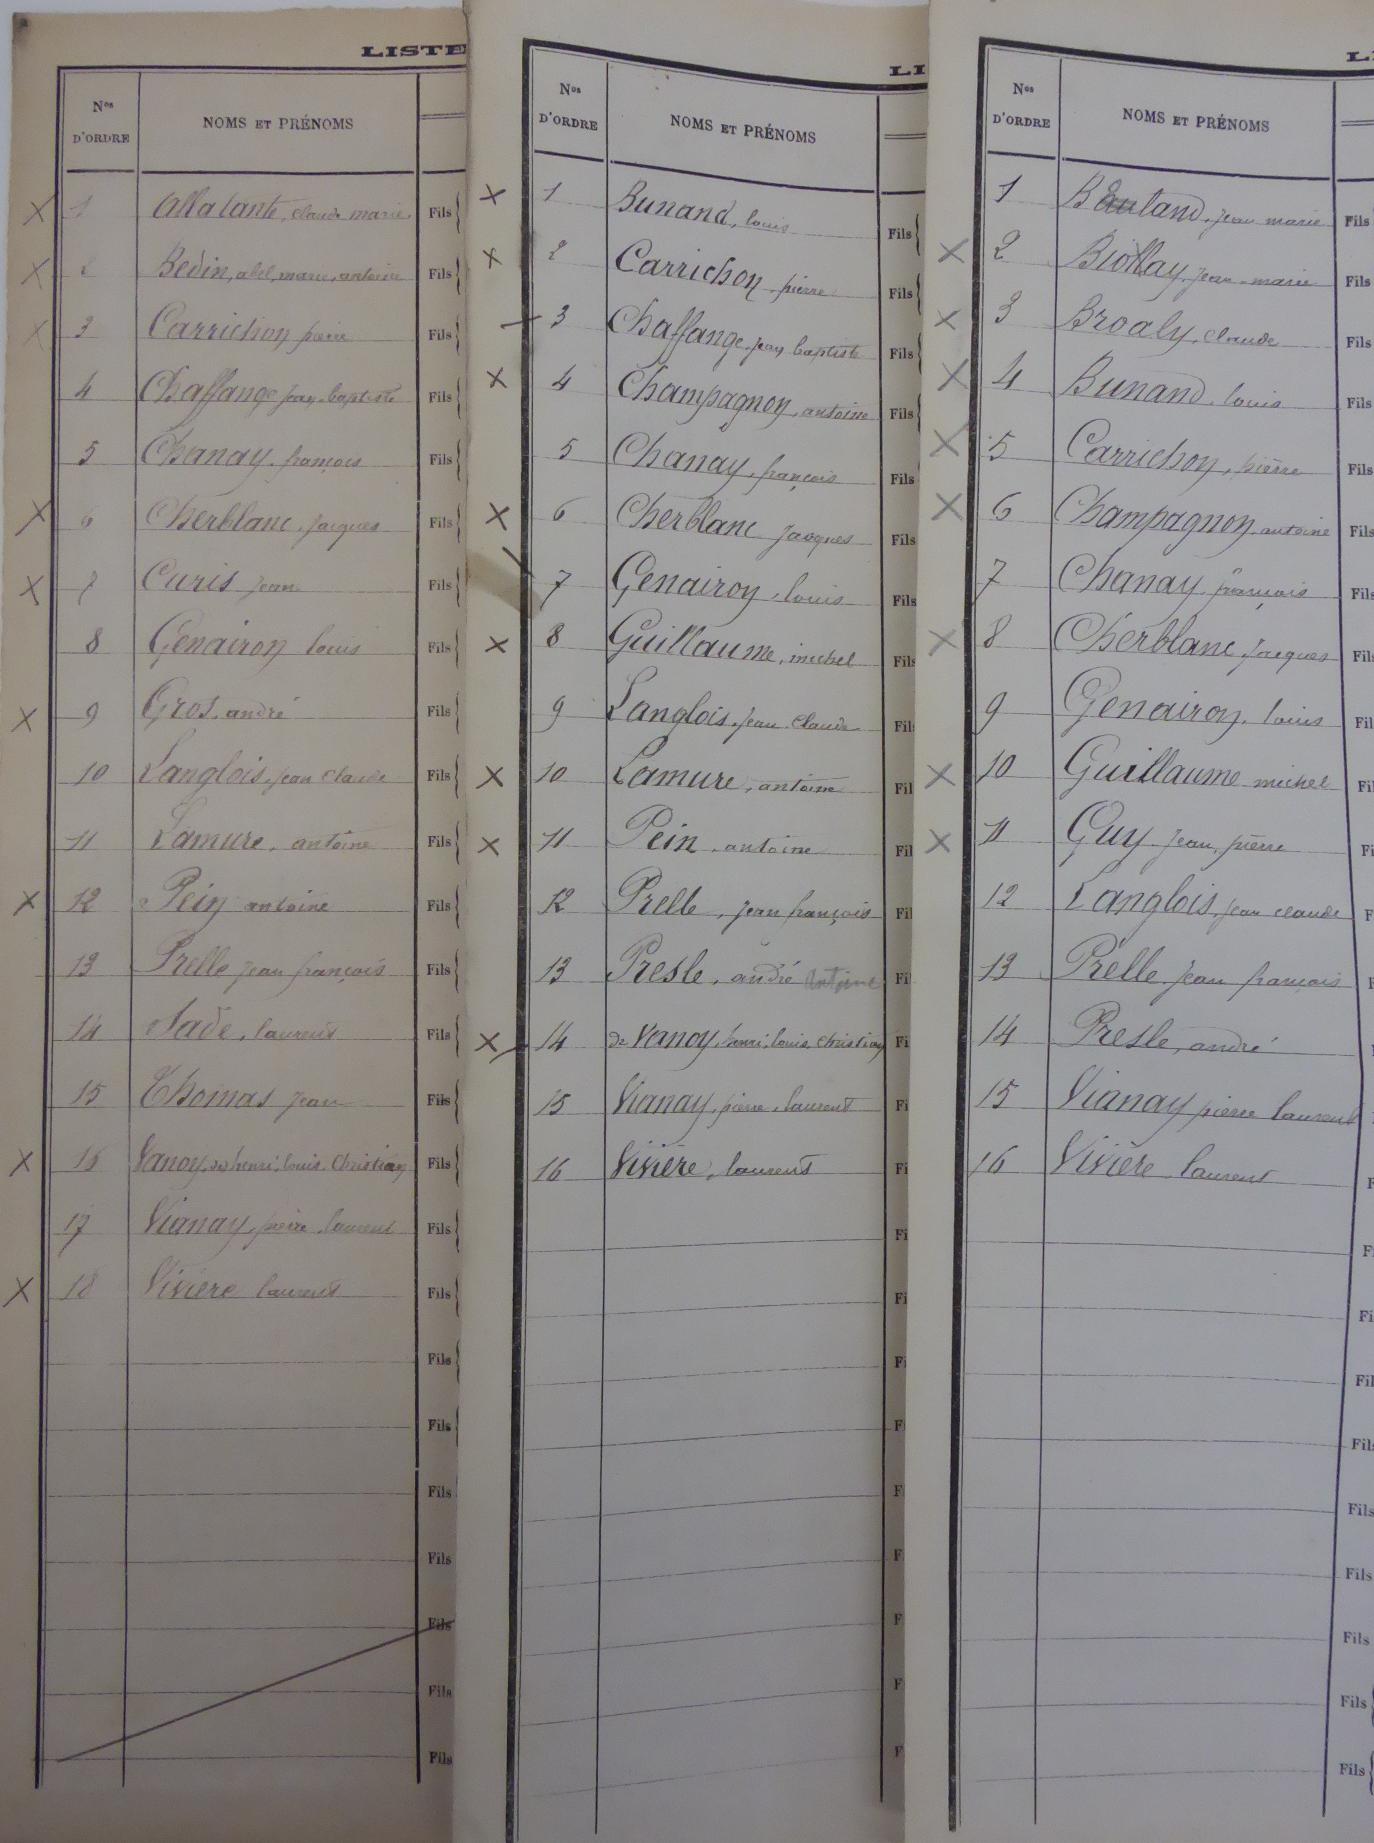 LISTE
Nos D'ORDRE
NOMS ET PRÉNOMS
1 Allatante, claude marie Fils
2 Bedin, abel, marie, antoine Fils
3 Carrichon pierre Fils
4 Chaffange jean baptiste Fils
5 Chanay, françois Fils
6 Cherblanc, Jacques Fils
7 Curis Jean Fils
8 Genairon louis Fils
9 Gros, andré Fils
10 Langlois, jean claude Fils
11 Lamure, antoine Fils
12 Pein antoine Fils
13 Prelle Jean françois Fils
14 Sade, laurent Fils
15 Thomas Jean Fils
16 Vanoy, de henri, louis, Christian Fils
17 Vianay, pierre, laurent Fils
18 Vivière laurent Fils
Fils
Fils
Fils
Fils
Fils
Fils
Fils
LI
Nos D'ORDRE
NOMS ET PRÉNOMS
1 Bunand, louis Fils
2 Carrichon, pierre Fils
3 Chaffange, jean baptiste Fils
4 Champagnon, antoine Fils
5 Chanay, françois Fils
6 Cherblanc Jacques Fils
7 Genairon, louis Fils
8 Guillaume, michel Fils
9 Langlois, jean claude Fil
10 Lamure, antoine Fil
11 Pein, antoine Fil
12 Prelle, jean françois Fil
13 Presle, andré Antoine Fi
14 de Vanoy, henri, louis, Christian Fi
15 Vianay, pierre, laurent Fi
16 Vivière, laurent Fi
Fi
Fi
Fi
F
F
F
F
F
F
L
Nos D'ORDRE
NOMS ET PRÉNOMS
1 Beauland, jean marie Fils
2 Biollay, jean marie Fils
3 Broaly, claude Fils
4 Bunand, louis Fils
5 Carrichon, pierre Fils
6 Champagnon, antoine Fils
7 Chanay, françois Fils
8 Cherblanc, Jacques Fils
9 Genairon, louis Fil
10 Guillaume michel Fi
11 Guy, Jean, pierre Fi
12 Langlois, jean claude F
13 Prelle, Jean françois
14 Presle, andré
15 Vianay pierre laurent
16 Vivière, laurent F
F
Fi
Fil
Fil
Fils
Fils
Fils
Fils
Fils